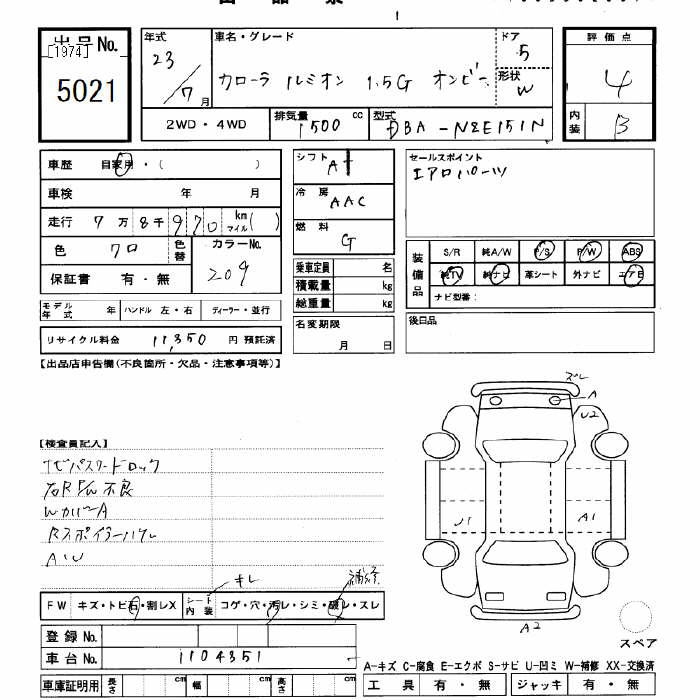 出品No.
[1974]
5021
年式
23/7月
車名・グレード
カローラ ルミオン 1.5G オンビー
ドア
5
形状
W
評価点
4
内装
B
2WD・4WD
排気量
1500cc
型式
DBA-NZE151N
車歴 自家用・( )
車検 年 月
走行 7万8千970 km マイル( )
色 クロ
色替
カラーNo.
209
保証書 有・無
シフト
AT
冷房
AAC
燃料
G
乗車定員 名
積載量 kg
総重量 kg
セールスポイント
エアロパーツ
装備品
S/R 純A/W P/S P/W ABS
純TV 純ナビ 革シート 外ナビ エアB
ナビ型番:
モデル年式 年 ハンドル 左・右 ディーラー・並行
リサイクル料金 11,350 円 預託済
名変期限
月 日
後日品
【出品店申告欄(不良箇所・欠品・注意事項等)】
【検査員記入】
ナビパスワードロック
右R P/W 不良
WカバーA
Rスポイラーハゲ
A・U
ズレ
A
U2
U1
A1
A2
スペア
キレ
補修
FW キズ・トビ石・割レX
シート内装 コゲ・穴・汚レ・シミ・破レ・スレ
登録No.
車台No. 1104351
車庫証明用 長さ cm 幅 cm 高さ cm
A-キズ C-腐食 E-エクボ S-サビ U-凹ミ W-補修 XX-交換済
工具 有・無 ジャッキ 有・無